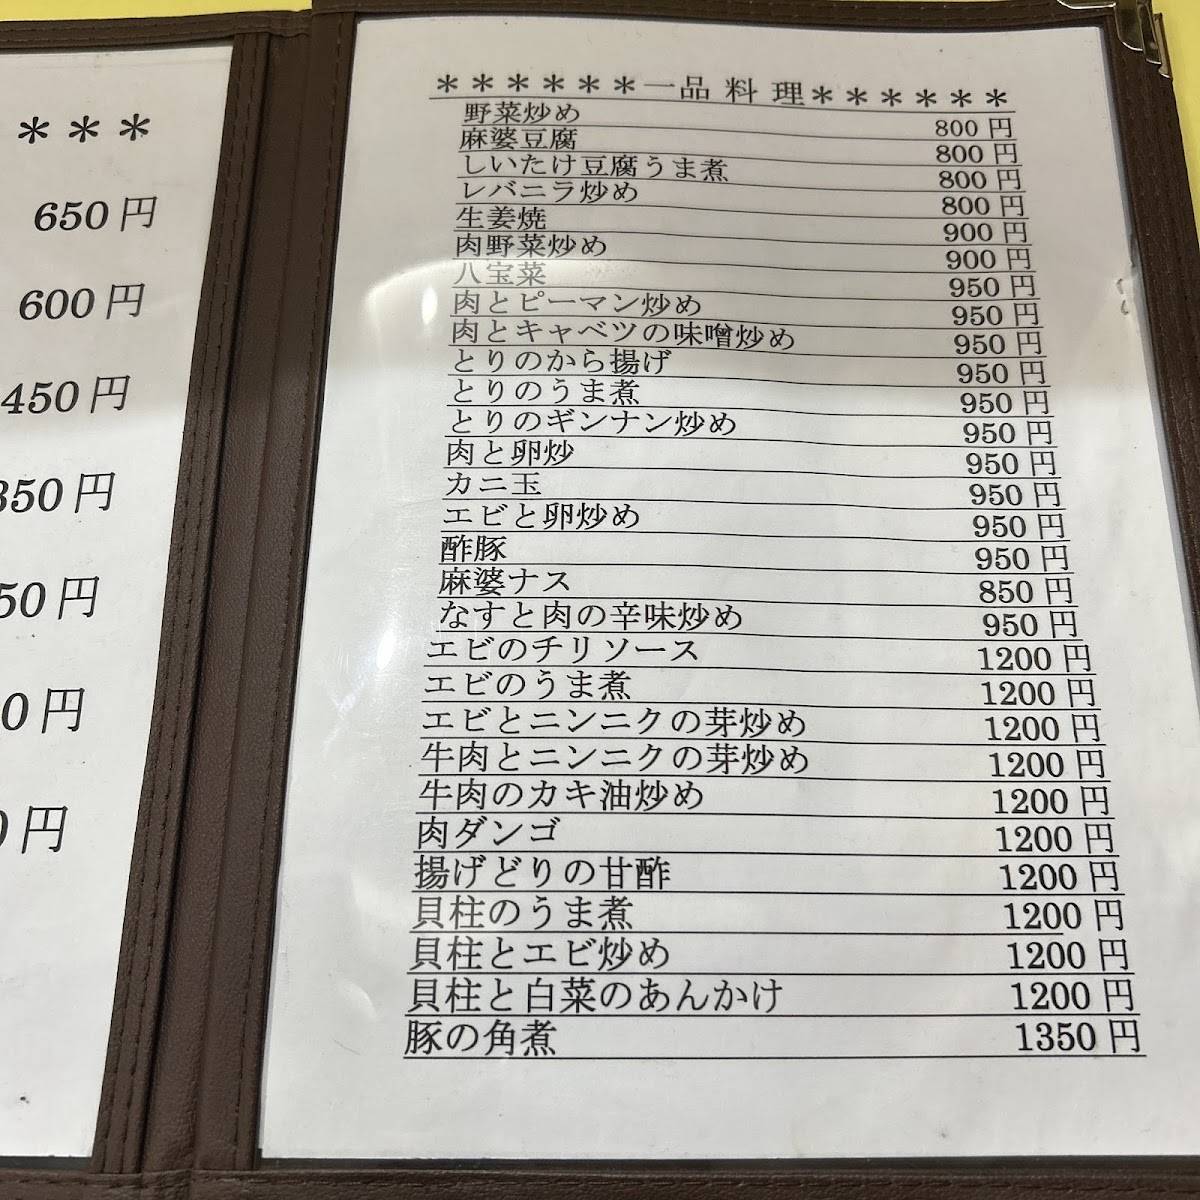 ＊＊＊
650円
600円
450円
350円
50円
0円
0円
＊＊＊＊＊＊一品料理＊＊＊＊＊＊
野菜炒め 800円
麻婆豆腐 800円
しいたけ豆腐うま煮 800円
レバニラ炒め 800円
生姜焼 900円
肉野菜炒め 900円
八宝菜 950円
肉とピーマン炒め 950円
肉とキャベツの味噌炒め 950円
とりのから揚げ 950円
とりのうま煮 950円
とりのギンナン炒め 950円
肉と卵炒 950円
カニ玉 950円
エビと卵炒め 950円
酢豚 950円
麻婆ナス 850円
なすと肉の辛味炒め 950円
エビのチリソース 1200円
エビのうま煮 1200円
エビとニンニクの芽炒め 1200円
牛肉とニンニクの芽炒め 1200円
牛肉のカキ油炒め 1200円
肉ダンゴ 1200円
揚げどりの甘酢 1200円
貝柱のうま煮 1200円
貝柱とエビ炒め 1200円
貝柱と白菜のあんかけ 1200円
豚の角煮 1350円